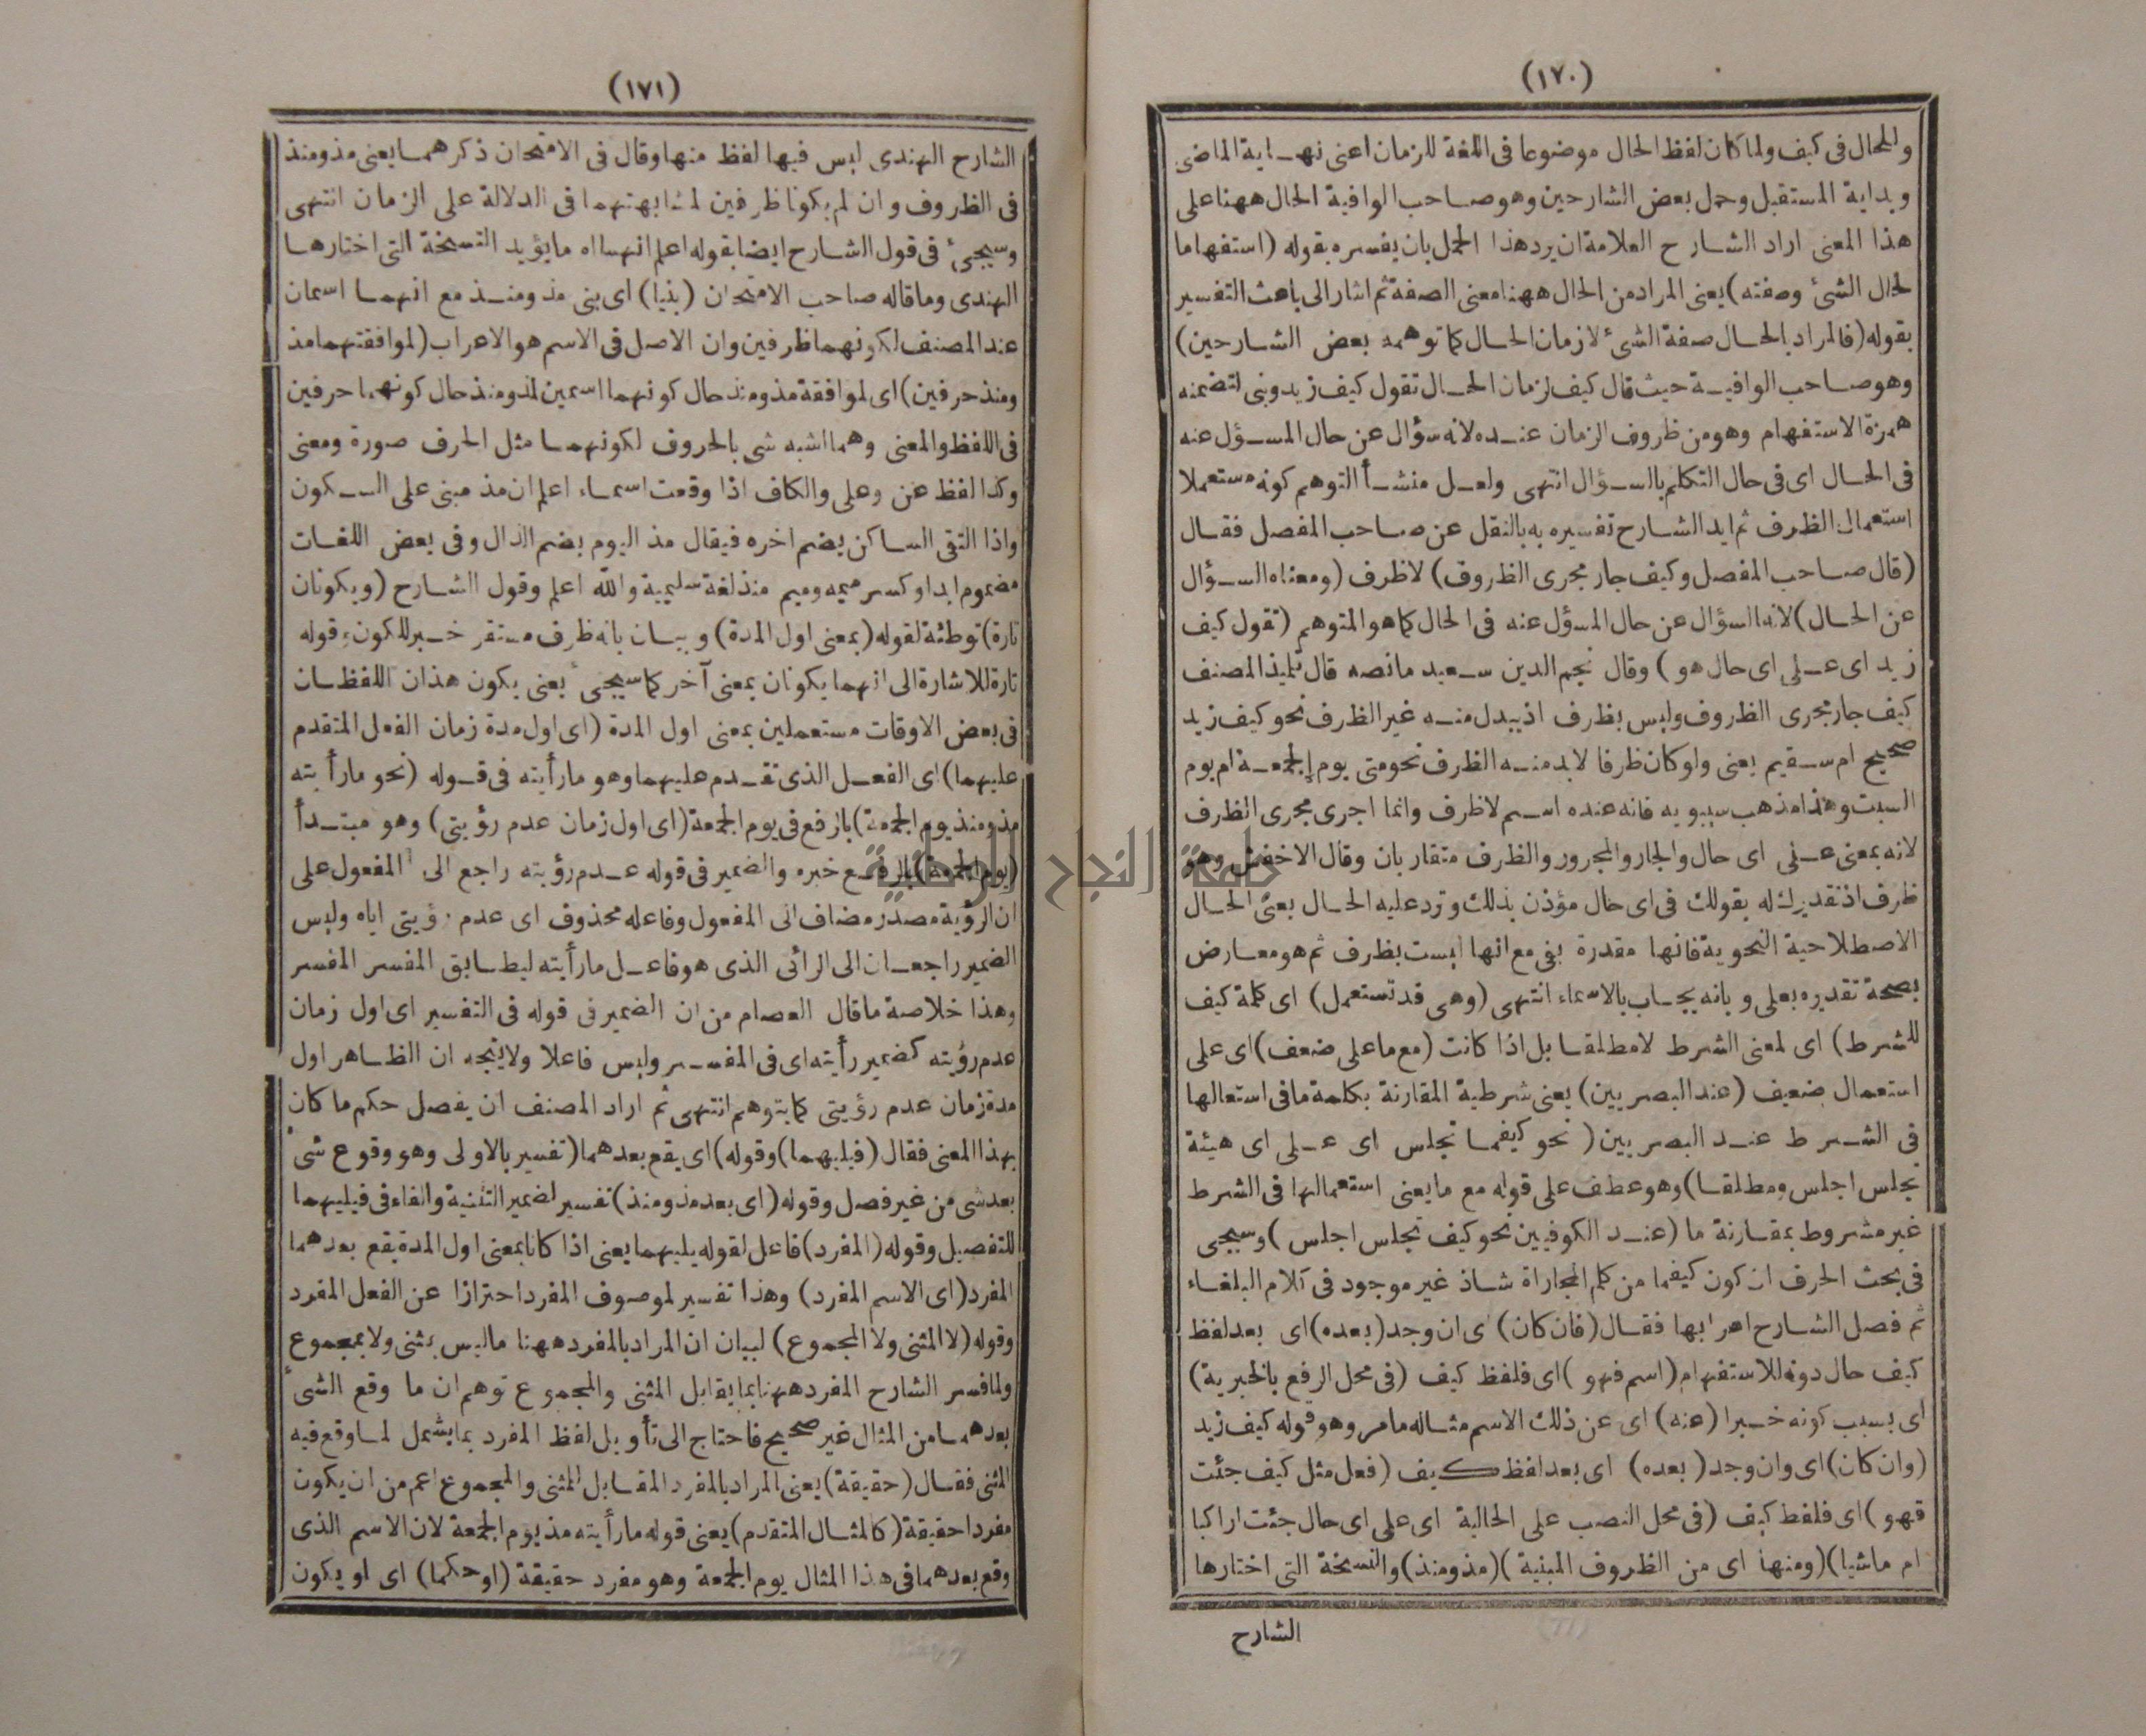 (١٧٠)
والحال فى كيف ولما كان لفظ الحال موضوعا فى اللغة للزمان اعنى نهاية الماضى
وبداية المستقبل وحمل بعض الشارحين وهو صاحب الوافية الحال ههنا على
هذا المعنى اراد الشارح العلامة ان يرد هذا الحمل بان يفسره بقوله (استفهاما
لحال الشئ وصفته) يعنى المراد من الحال ههنا معنى الصفة ثم اشار الى باعث التفسير
بقوله (فالمراد بالحال صفة الشئ لازمان الحال كما توهمه بعض الشارحين)
وهو صاحب الوافية حيث قال كيف لزمان الحال تقول كيف زيد وبنى لتضمنه
همزة الاستفهام وهو من ظروف الزمان عنده لانه سؤال عن حال المسؤل عنه
فى الحال اى فى حال التكلم بالسؤال انتهى ولعل منشأ التوهم كونه مستعملا
استعمال الظرف ثم ايد الشارح تفسيره به بالنقل عن صاحب المفصل فقال
(قال صاحب المفصل وكيف جار مجرى الظروف) لا ظرف (ومعناه السؤال
عن الحال) لانه السؤال عن حال المسؤل عنه فى الحال كما هو المتوهم (تقول كيف
زيد اى على اى حال هو) وقال نجم الدين سعيد ما نصه قال تلميذ المصنف
كيف جار مجرى الظروف وليس بظرف اذ يبدل منه غير الظرف نحو كيف زيد
صحيح ام سقيم يعنى ولو كان ظرفا لابد منه الظرف نحو متى يوم الجمعة ام يوم
السبت وهذا مذهب سيبويه فانه عنده اسم لا ظرف وانما اجرى مجرى الظرف
لانه بمعنى على اى حال والجار والمجرور والظرف متقاربان وقال الاخفش وهو
ظرف اذ تقديرك له بقولك فى اى حال مؤذن بذلك وترد عليه الحال يعنى الحال
الاصطلاحية النحوية فانها مقدرة بفى مع انها ليست بظرف ثم هو معارض
بصحة تقديره بعلى وبانه يجاب بالاسماء انتهى (وهى قد تستعمل) اى كلمة كيف
للشرط) اى لمعنى الشرط لا مطلقا بل اذا كانت (مع ما على ضعف) اى على
استعمال ضعيف (عند البصريين) يعنى شرطية المقارنة بكلمة ما فى استعمالها
فى الشرط عند البصريين (نحو كيفما تجلس اى على اى هيئة
تجلس اجلس ومطلقا) وهو عطف على قوله مع ما يعنى استعمالها فى الشرط
غير مشروط بمقارنة ما (عند الكوفيين نحو كيف تجلس اجلس) وسيجى
فى بحث الحرف ان كون كيفما من كلم المجازاة شاذ غير موجود فى كلام البلغاء
ثم فصل الشارح اعرابها فقال (فان كان) اى ان وجد (بعده) اى بعد لفظ
كيف حال كونه للاستفهام (اسم فهو) اى فلفظ كيف (فى محل الرفع بالخبرية)
اى بسبب كونه خبرا (عنه) اى عن ذلك الاسم مثاله ما مر وهو قوله كيف زيد
(وان كان) اى وان وجد (بعده) اى بعد لفظ كيف (فعل مثل كيف جئت
فهو) اى فلفظ كيف (فى محل النصب على الحالية اى على اى حال جئت اراكبا
ام ماشيا) (ومنها اى من الظروف المبنية) (مذ ومنذ) والنسخة التى اختارها
الشارح
(١٧١)
الشارح الهندى ليس فيها لفظ منها وقال فى الامتحان ذكرهما يعنى مذ ومنذ
فى الظروف وان لم يكونا ظرفين لمشابهتهما فى الدلالة على الزمان انتهى
وسيجئ فى قول الشارح ايضا بقوله اعلم انهما اه ما يؤيد النسخة التى اختارها
الهندى وما قاله صاحب الامتحان (بنيا) اى بنى مذ ومنذ مع انهما اسمان
عند المصنف لكونهما ظرفين وان الاصل فى الاسم هو الاعراب (لموافقتهما مذ
ومنذ حرفين) اى لموافقة مذ ومنذ حال كونهما اسمين لمذ ومنذ حال كونهما حرفين
فى اللفظ والمعنى وهما اشبه شى بالحروف لكونهما مثل الحرف صورة ومعنى
وكذا لفظ عن وعلى والكاف اذا وقعت اسماء اعلم ان مذ مبنى على السكون
واذا التقى الساكن يضم اخره فيقال مذ اليوم بضم الذال وفى بعض اللغات
مضموم ابدا وكسر ميمه وميم منذ لغة سليمية والله اعلم وقول الشارح (ويكونان
تارة) توطئة لقوله (بمعنى اول المدة) وبيان بانه ظرف مستقر خبر للكون وقوله
تارة للاشارة الى انهما يكونان بمعنى آخر كما سيجئ يعنى يكون هذان اللفظان
فى بعض الاوقات مستعملين بمعنى اول المدة (اى اول مدة زمان الفعل المتقدم
عليهما) اى الفعل الذى تقدم عليهما وهو ما رأيته فى قوله (نحو ما رأيته
مذ ومنذ يوم الجمعة) بالرفع فى يوم الجمعة (اى اول زمان عدم رؤيتى) وهو مبتدأ
(يوم الجمعة) بالرفع خبره والضمير فى قوله عدم رؤيته راجع الى المفعول على
ان الرؤية مصدر مضاف الى المفعول وفاعله محذوف اى عدم رؤيتى اياه وليس
الضمير راجعا الى الرائى الذى هو فاعل ما رأيته ليطابق المفسر المفسر
وهذا خلاصة ما قال العصام من ان الضمير فى قوله فى التفسير اى اول زمان
عدم رؤيته كضمير رأيته اى فى المفسر وليس فاعلا ولا يتجه ان الظاهر اول
مدة زمان عدم رؤيتى كما يتوهم انتهى ثم اراد المصنف ان يفصل حكم ما كان
بهذا المعنى فقال (فيليهما) وقوله) اى يقع بعدهما (تفسير بالاولى وهو وقوع شى
بعد شى من غير فصل وقوله (اى بعد مذ ومنذ) تفسير لضمير التثنية والفاء فى فيليهما
للتفصيل وقوله (المفرد) فاعل لقوله يليهما يعنى اذا كانا بمعنى اول المدة يقع بعدهما
المفرد (اى الاسم المفرد) وهذا تفسير لموصوف المفرد احترازا عن الفعل المفرد
وقوله (لا المثنى ولا المجموع) لبيان ان المراد بالمفرد ههنا ما ليس بمثنى ولا بمجموع
ولما فسر الشارح المفرد ههنا بما يقابل المثنى والمجموع توهم ان ما وقع الشئ
بعدهما من المثال غير صحيح فاحتاج الى تأويل لفظ المفرد بما يشمل لما وقع فيه
المثنى فقال (حقيقة) يعنى المراد بالمفرد المقابل للمثنى والمجموع اعم من ان يكون
مفردا حقيقة (كالمثال المتقدم) يعنى قوله ما رأيته مذ يوم الجمعة لان الاسم الذى
وقع بعدهما فى هذا المثال يوم الجمعة وهو مفرد حقيقة (او حكما) اى او يكون
جامعة النجاح الوطنية